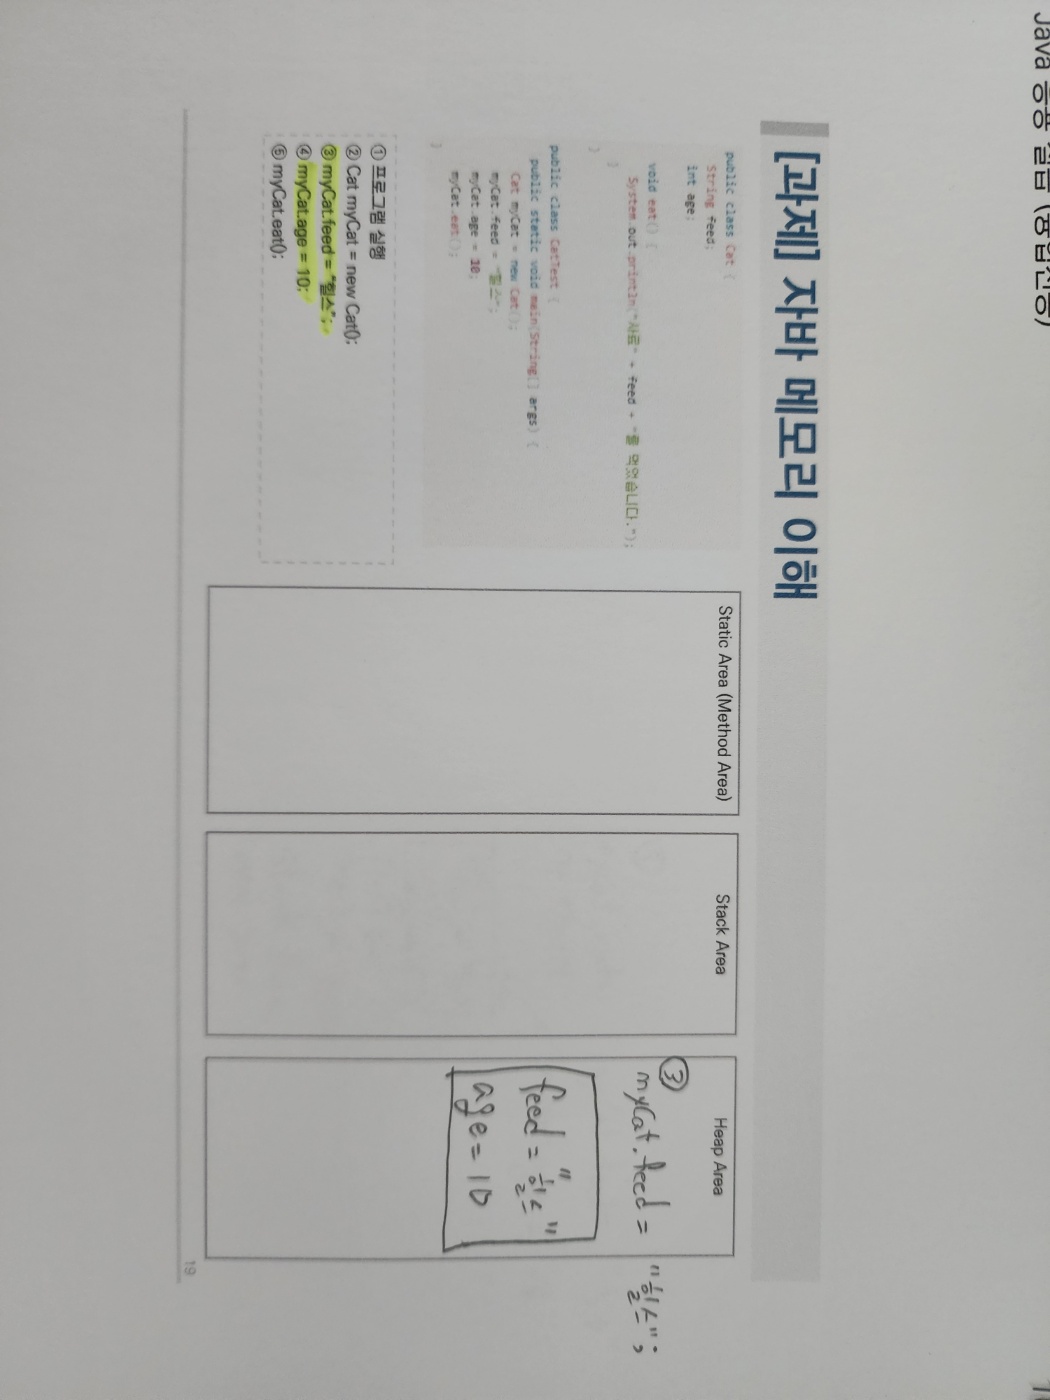 Java 응용 실습 (융합전공)
[과제] 자바 메모리 이해
public class Cat {
String feed;
int age;
void eat() {
System.out.println("사료" + feed + "를 먹었습니다.");
}
}
public class CatTest {
public static void main(String[] args) {
Cat myCat = new Cat();
myCat.feed = "힐스";
myCat.age = 10;
myCat.eat();
}
① 프로그램 실행
② Cat myCat = new Cat();
③ myCat.feed = "힐스";
④ myCat.age = 10;
⑤ myCat.eat();
Static Area (Method Area)
Stack Area
Heap Area
③
myCat.feed = "힐스";
feed = "힐스"
age = 10
19